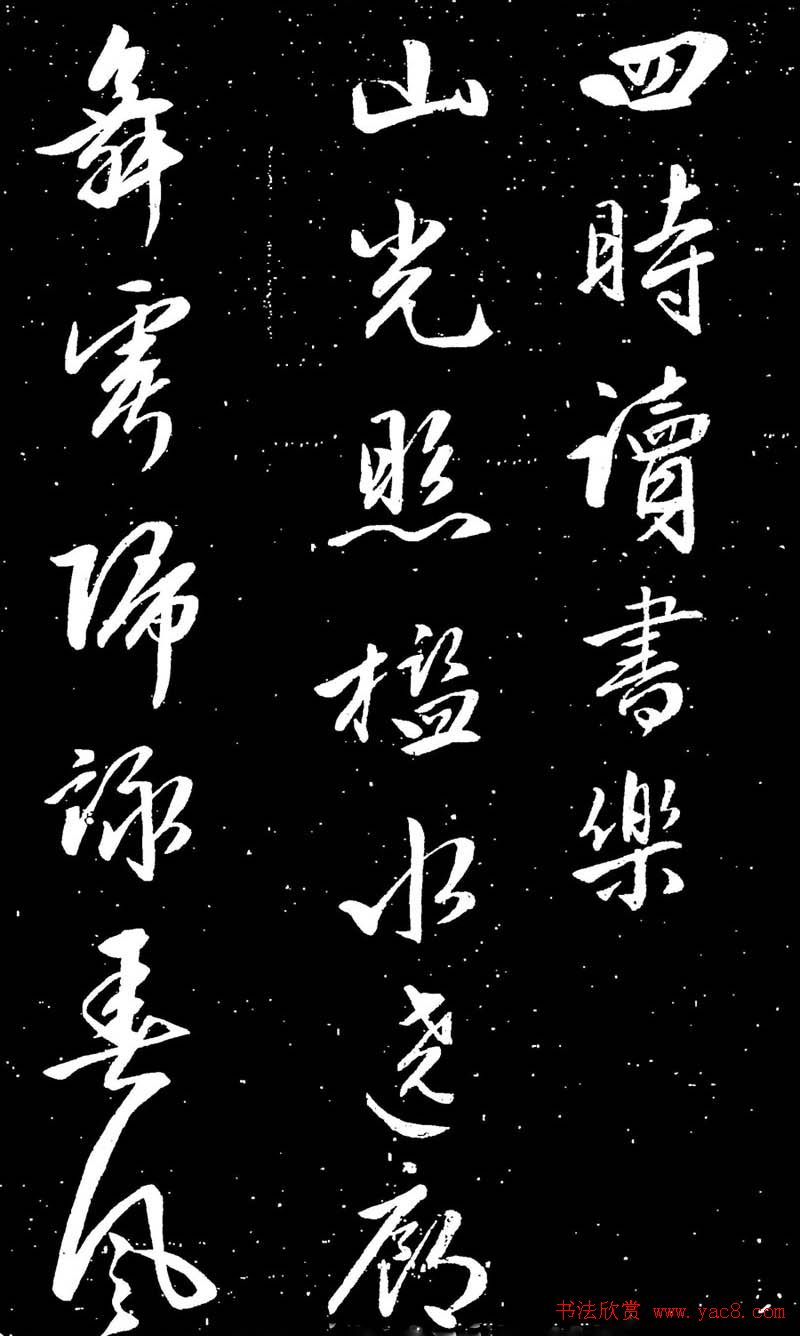 四時讀書樂
山光照檻水遶廊
舞雩歸詠春風
书法欣赏 www.yac8.com